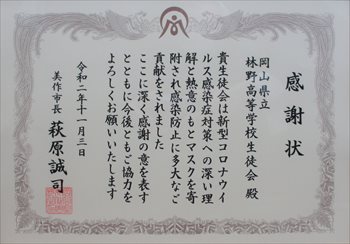 感謝状
岡山県立
林野高等学校生徒会 殿
貴生徒会は新型コロナウイ
ルス感染症対策への深い理
解と熱意のもとマスクを寄
附され感染防止に多大なご
貢献をされました
ここに深く感謝の意を表す
とともに今後ともご協力を
よろしくお願いいたします
令和二年十一月三日
美作市長 萩原誠司